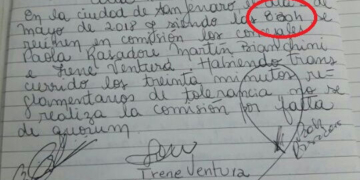 En la ciudad de San Jenaro, el de
Mayo de 2018 siendo las 8:30h se
reúnen en comisión los concejales
Paola Rasadore Martín Bianchini
e Irene Ventura. Habiendo trans
currido los treinta minutos re-
glamentarios de tolerancia no se
realiza la comisión por falta
de quorum
Irene Ventura